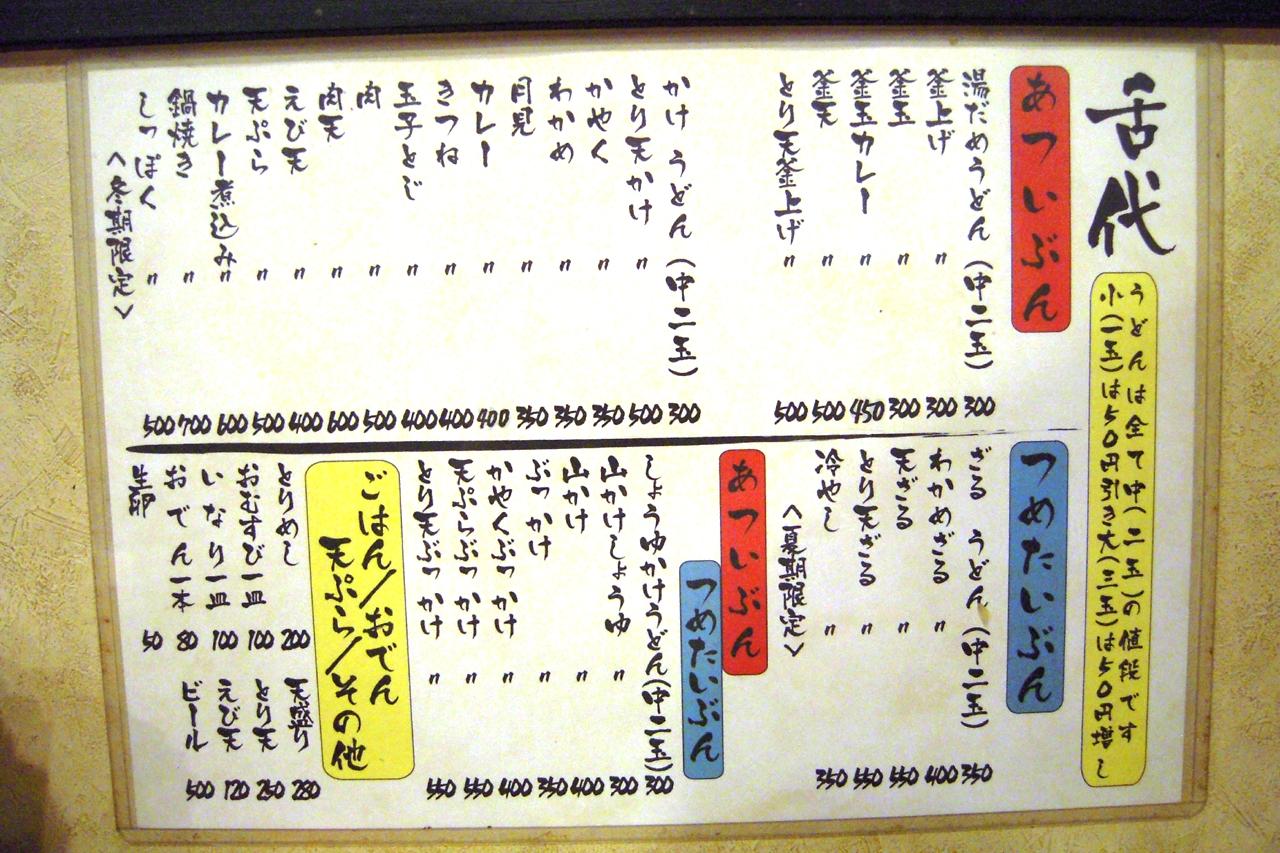 舌代
うどんは全て中(二玉)の値段です
小(一玉)は50円引き大(三玉)は50円増し
あついぶん
湯だめうどん(中二玉) 300
釜上げ 〃 300
釜玉 〃 300
釜玉カレー 〃 450
釜天 〃 500
とり天釜上げ 〃 500
かけ うどん(中二玉) 300
とり天かけ 〃 500
かやく 〃 350
わかめ 〃 350
月見 〃 350
カレー 〃 400
きつね 〃 400
玉子とじ 〃 400
肉 〃 500
肉天 〃 600
えび天 〃 400
天ぷら 〃 500
カレー煮込み 〃 600
鍋焼き 〃 700
しっぽく 〃 500
<冬期限定>
つめたいぶん
ざる うどん(中二玉) 350
わかめざる 〃 400
天ざる 〃 550
とり天ざる 〃 550
冷やし 〃 350
<夏期限定>
あついぶん
つめたいぶん
しょうゆかけうどん(中二玉) 300
山かけしょうゆ 〃 300
山かけ 〃 400
ぶっかけ 〃 350
かやくぶっかけ 〃 400
天ぷらぶっかけ 〃 550
とり天ぶっかけ 〃 550
ごはん/おでん
天ぷら/その他
とりめし 200
おむすび一皿 100
いなり一皿 100
おでん一本 80
生卵 50
天盛り 280
とり天 250
えび天 120
ビール 500